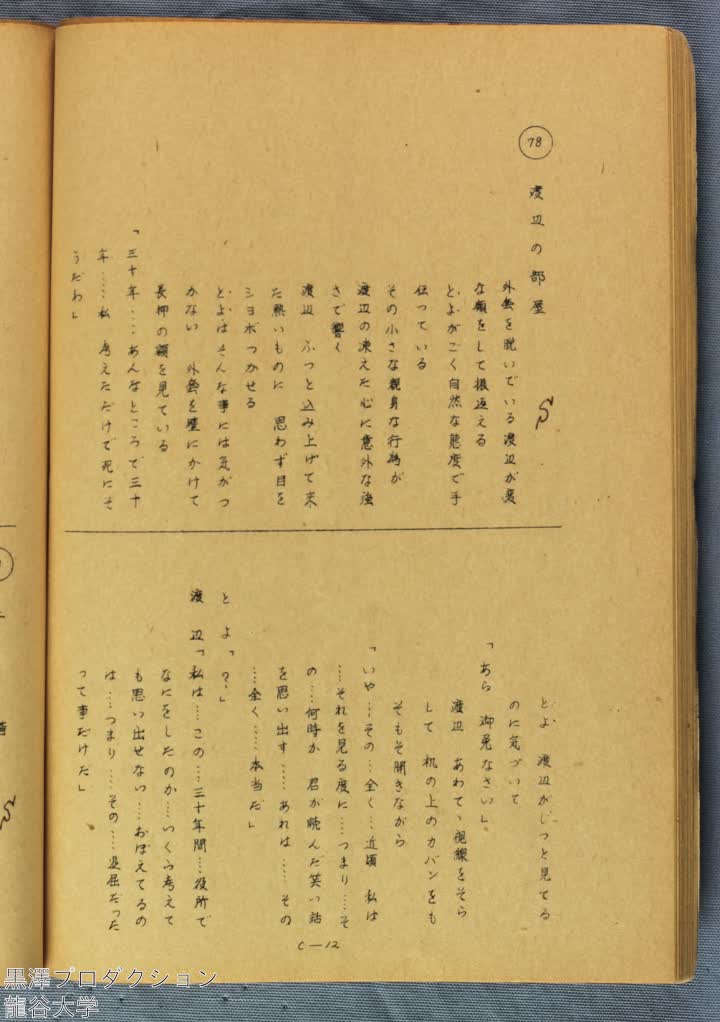 78
渡辺の部屋
外套を脱いでいる渡辺が変
な顔をして振返える
とよがごく自然な態度で手
伝っている
その小さな親身な行為が
渡辺の凍えた心に意外な強
さで響く
渡辺 ふっと込み上げて来
た熱いものに 思わず目を
ショボつかせる
とよはそんな事には気がつ
かない 外套を壁にかけて
長押の額を見ている
「三十年……あんなところで三十
年……私 考えただけで死にそ
うだわ」
とよ 渡辺がじっと見てる
のに気づいて
「あら 御免なさい」
渡辺 あわてゝ視線をそら
して 机の上のカバンをも
そもそ開きながら
「いや…その…全く…近頃 私は
…それを見る度に……つまり……そ
の……何時か 君が読んだ笑い話
を思い出す……あれは……その
……全く……本当だ」
とよ「?」
渡辺「私は…この…三十年間…役所で
なにをしたのか…いくら考えて
も思い出せない……おぼえてるの
は……つまり……その……退屈だった
って事だけだ」
C—12
黒澤プロダクション
龍谷大学